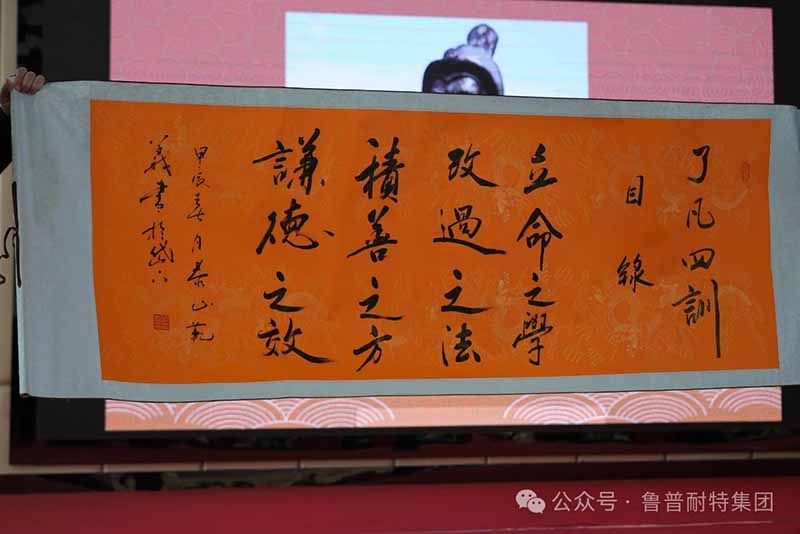 了凡四訓
目錄
立命之學
改過之法
積善之方
謙德之效
甲辰春月泰山范
義書於岱下
公众号·鲁普耐特集团